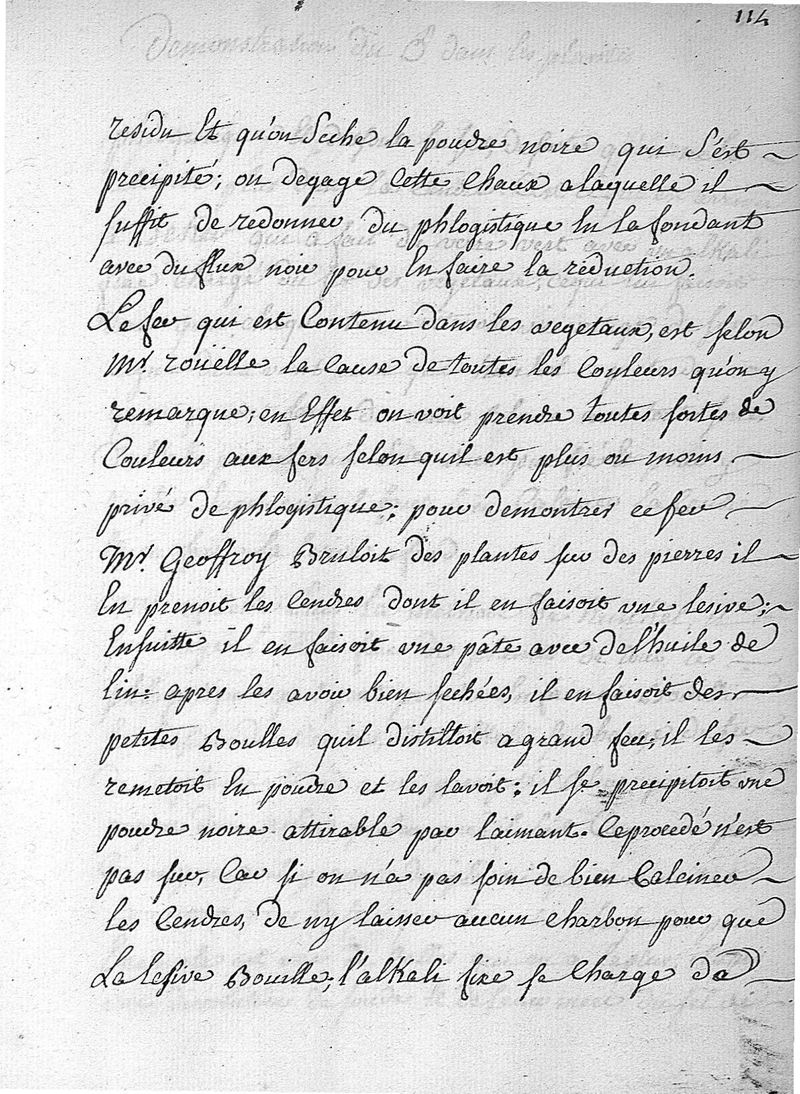 114
residu Et qu'on Seche la poudre noire qui S'est
precipité; on degage Cette Chaux a laquelle il
suffit de redonner du phlogistique En la fondant
avec du flux noir pour En faire la réduction.
Le fer qui est Contenu dans les vegetaux, est selon
Mr. roüelle la Cause de toutes les Couleurs qu'on y
remarque; en Effet on voit prendre toutes sortes de
Couleurs aux fers selon quil est plus ou moins
privé de phlogistique; pour demontrer ce fer
Mr. Geoffroy Bruloit des plantes sur des pierres il
En prenoit les Cendres dont il en faisoit vne lesive;
Ensuitte il en faisoit vne pâte avec de l'huile de
lin: apres les avoir bien sechées, il en faisoit des
petites Boulles quil distilloit a grand feu; il les
remetoit En poudre et les lavoit; il se precipitoit vne
poudre noire attirable par laimant. Ce procedé n'est
pas sur, Car si on n'a pas soin de bien Calciner
les Cendres, de ny laisser aucun charbon pour que
La lesive Bouille; l'alKali fixe se Charge da